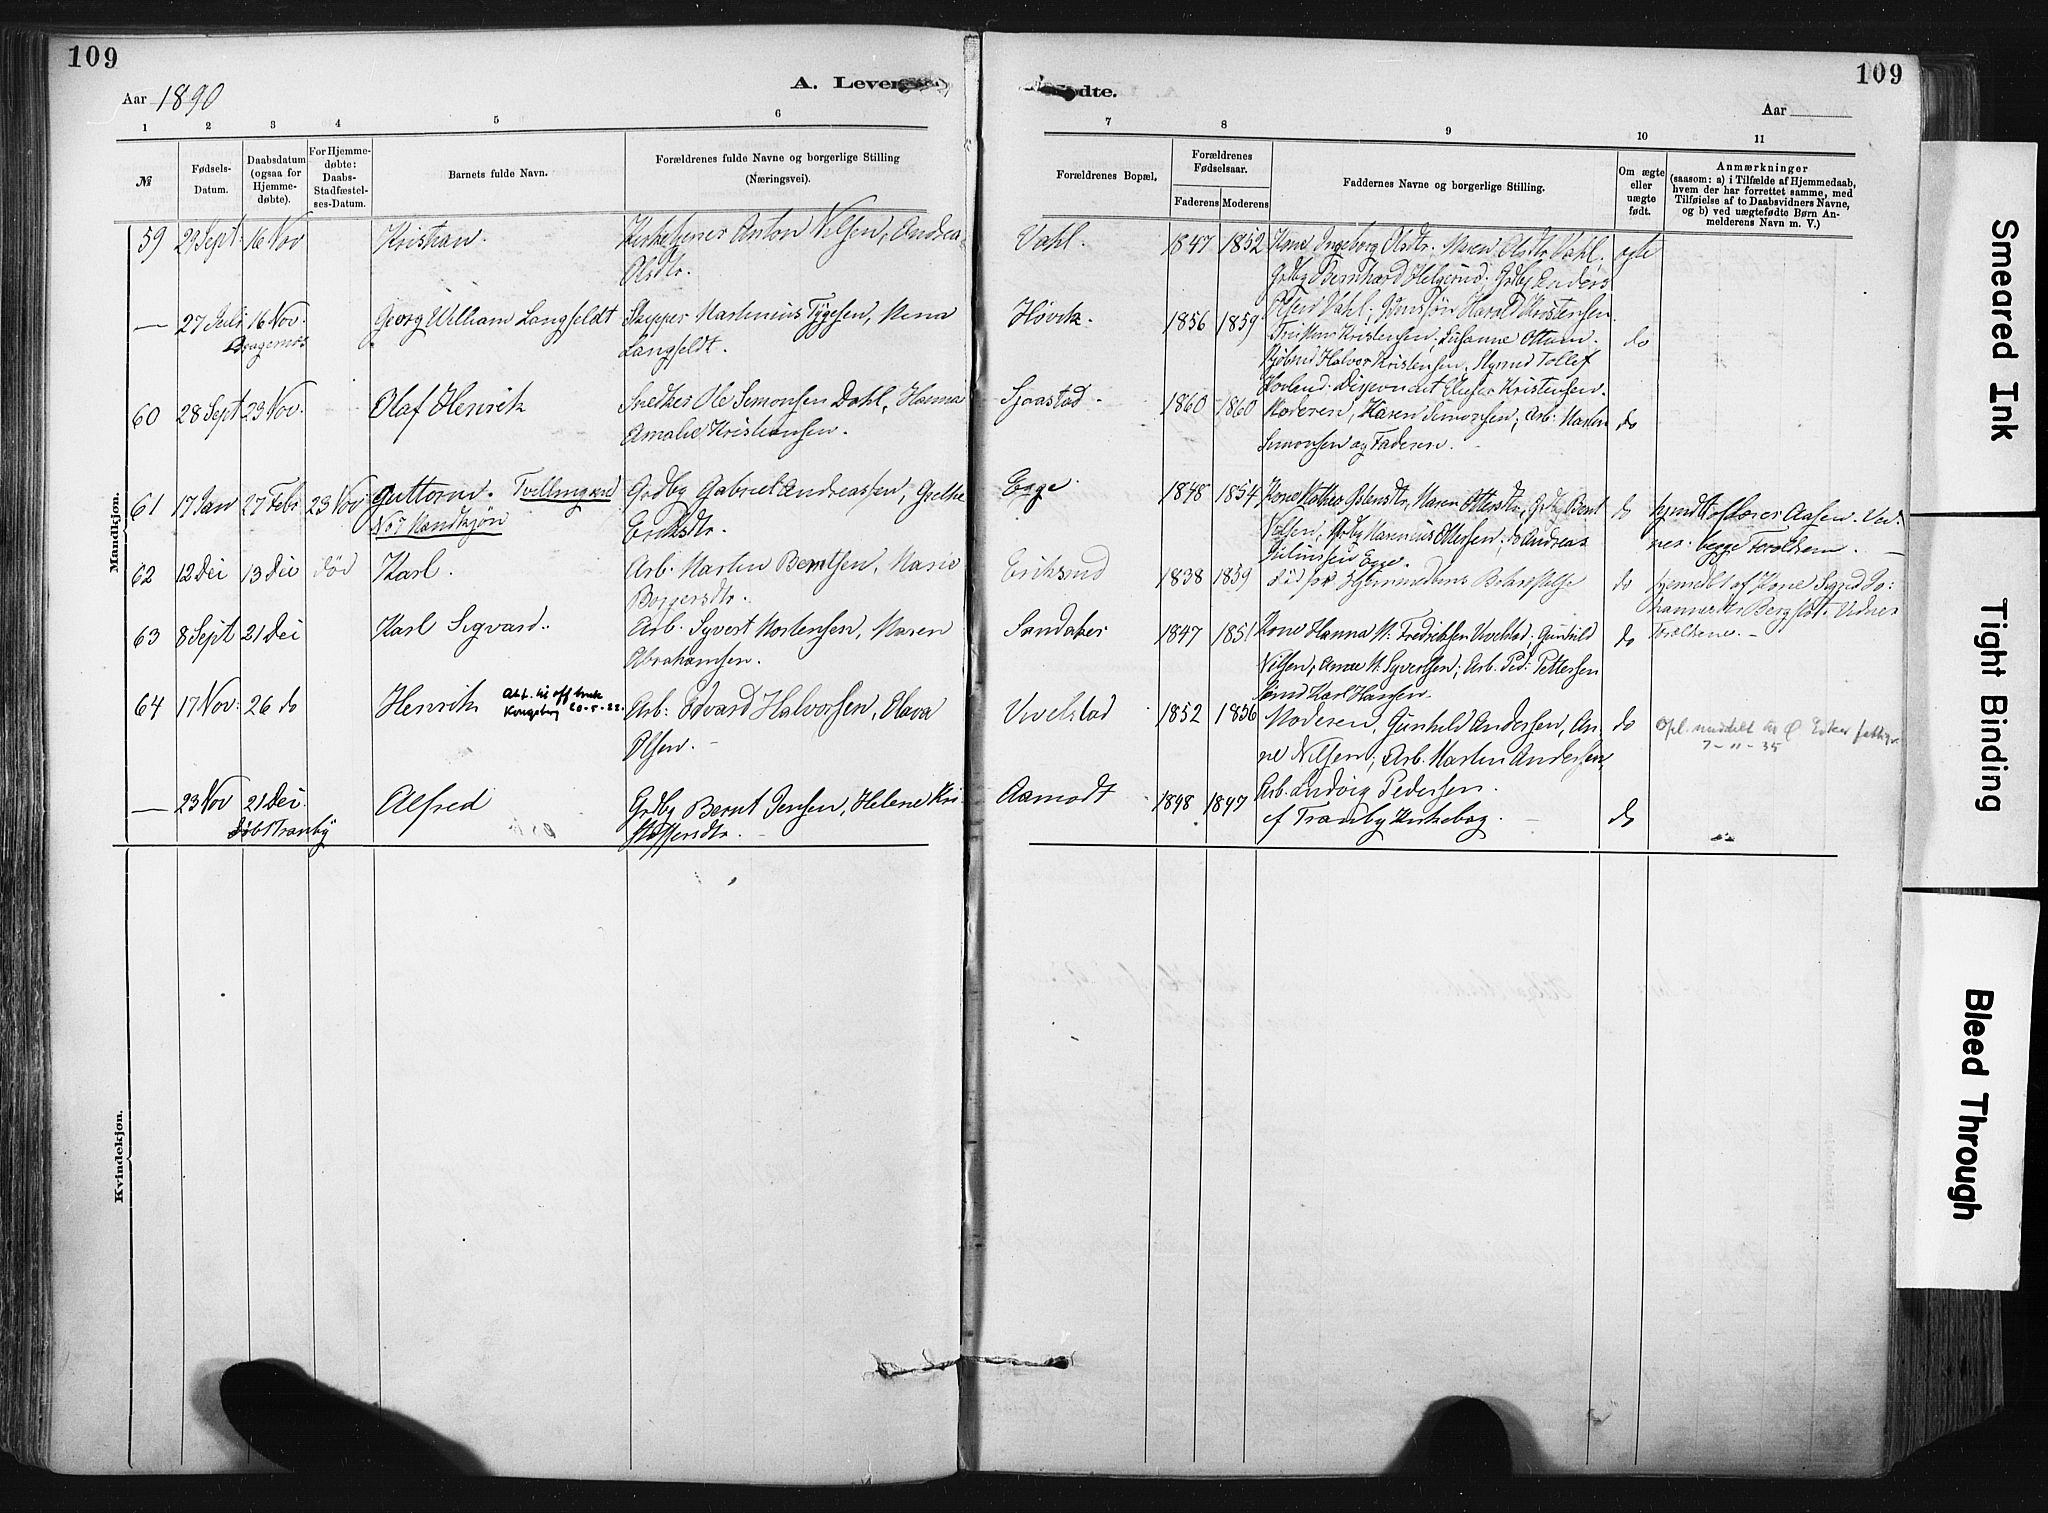 109
109
A. Leven
ødte.
Aar 1890
Aar
1 2 3 4 5 6 7 8 9 10 11
№
Fødsels-Datum.
Daabsdatum (ogsaa for Hjemme-døbte).
For Hjemme-døbte: Daabs-Stadfæstel-ses-Datum.
Barnets fulde Navn.
Forældrenes fulde Navne og borgerlige Stilling
(Næringsvei).
Forældrenes Bopæl.
Forældrenes Fødselsaar.
Faderens Moderens
Faddernes Navne og borgerlige Stilling.
Om ægte eller uægte født.
Anmærkninger
(saasom: a) i Tilfælde af Hjemmedaab,
hvem der har forrettet samme, med
Tilføielse af to Daabsvidners Navne,
og b) ved uægtefødte Børn An-
melderens Navn m. V.)
Mandkjøn.
59 29 Sept. 16 Nov Kristian. Kirketjener Anton Nilsen, Andrea
Olsdtr.
Vahl. 1847 1852 Kone Ingeborg Olsdtr. Maren Olsdtr Vahl. ægte
Grdbg Bernhard Helgerud. Grdbg Anders
Olsen Vahl.
— 27 Juli 16 Nov. Georg William Langfeldt Skipper Martinius Tygesen, Nena
Bragernes Langfeldt.
Høvik. 1856 1859 Gjømsløs Harald Kristensen do
Kristensen, Susanne Ottum.
Halvor Kristensen, Styrmd Tollef
Hovland. Elefer Kristensen.
60 28 Sept 23 Nov. Olaf Henrik Snedker Ole Simonsen Dahl, Hanna
Amalie Kristiansen.
Sjaastad. 1860 1860 Moderen, Karen Simonsen, Arb. Martin do
Simonsen og Faderen.
61 17 Jan 27 Febr 23 Nov Guttorm. Tvilling med Grdbg Gabriel Andreassen, Grethe
No 7 Kvindkjøn Eriksdtr.
Egge. 1848 1854 Kone Mathea Gulensdtr, Maren Ottersdtr, Grdbg Bent do
Nilsen, Grdbg Marenius Ottersen, do Andreas
Juliussen Egge.
Aasen. Vid-
nes. begge Forældrene. —
62 12 Dec 13 Dec død Karl. Arb. Martin Berntsen, Marie
Borgersdtr.
Eriksrud 1838 1859 død før Hjemmedaabens Bekræftelse do
hjemdøbt af Kone Sigrid Jo-
hannesdtr Bergsløt. Vidner
Forældrene. —
63 8 Sept 21 Dec Karl Sigvard. Arb. Syvert Mortensen, Maren
Abrahamsen.
Sandaker 1847 1851 Kone Hanna M. Fredriksen Uvelstad. Gunhild do
Nilsen, Anne M. Syvertsen, Arb. Ped: Pettersen
Karl Hansen.
64 17 Nov. 26 do Henrik Att. til off. bruk
Kongsberg 20-5-22. Arb: Edvard Halvorsen, Olava
Olsen. —
Uvelstad 1852 1856 Moderen, Gunhild Andersen, An- do
ne Nilsen, Arb. Martin Andersen,
Arb. Ludvig Pedersen.
Opl. meddelt til Ø. Eiker
7-11-35
— 23 Nov 21 Dec. Alfred Grdbg Bernt Jensen, Helene Kri-
døbt Tranby stoffersdtr. —
Aamodt 1848 1847 cf Tranby Kirkebog. — do
Kvindekjøn.
Smeared Ink
Tight Binding
Bleed Through